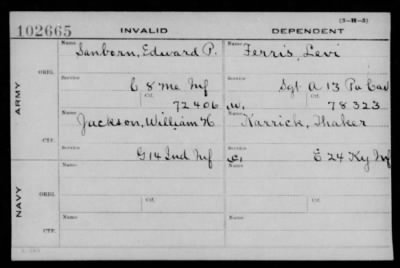 (3-H-5)
102665 INVALID DEPENDENT
Name Name
Sanborn, Edward P. Ferris, Levi
ORIG.
Service Service
C 8 Me Inf Sgt A 13 Pa Cav
Ctf. Ctf.
72406 W. 78323
ARMY
Name Name
Jackson, William H Karrick, Thaker
CTF.
Service
G 14 Ind Inf C. E 24 Ky Inf
Name Name
NAVY
ORIG.
Service Ctf. Service Ctf.
Name Name
CTF.
Service Service